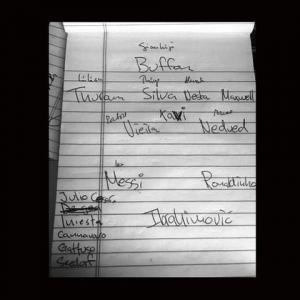 Gianluigi
Buffon
Lilian Thiago
Thuram Silva Nesta Maxwell
Patrick Pavel
Vieira Xavi Nedved
Leo
Messi Ronaldinho
Julio Cesar
Iniesta Ibrahimović
Cannavaro
Gattuso
Seedorf